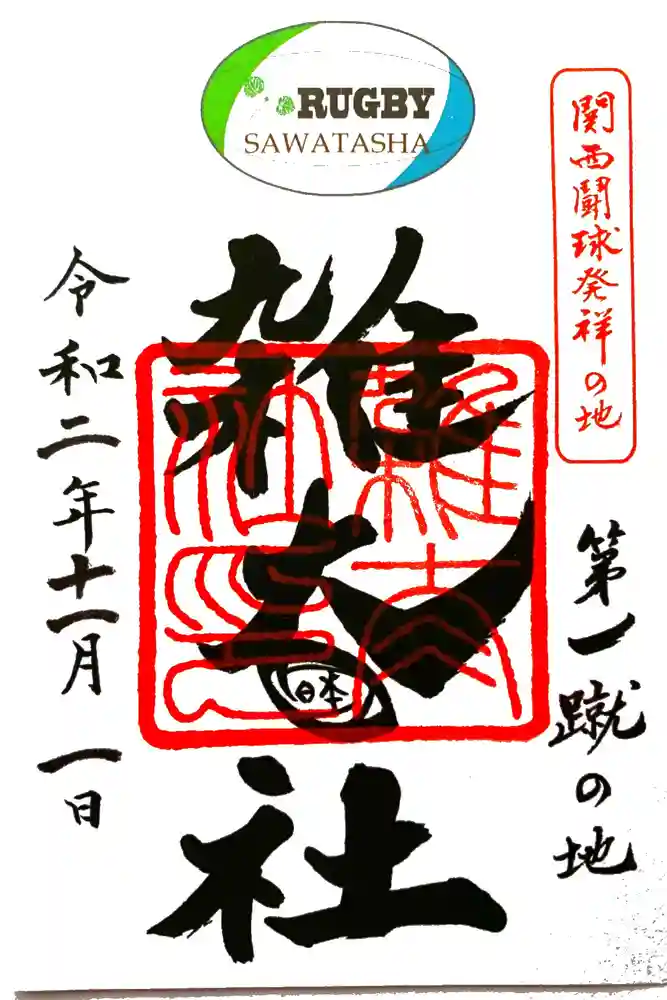 RUGBY
SAWATASHA
関西闘球発祥の地
第一蹴の地
雑太社
日本
令和二年十一月一日